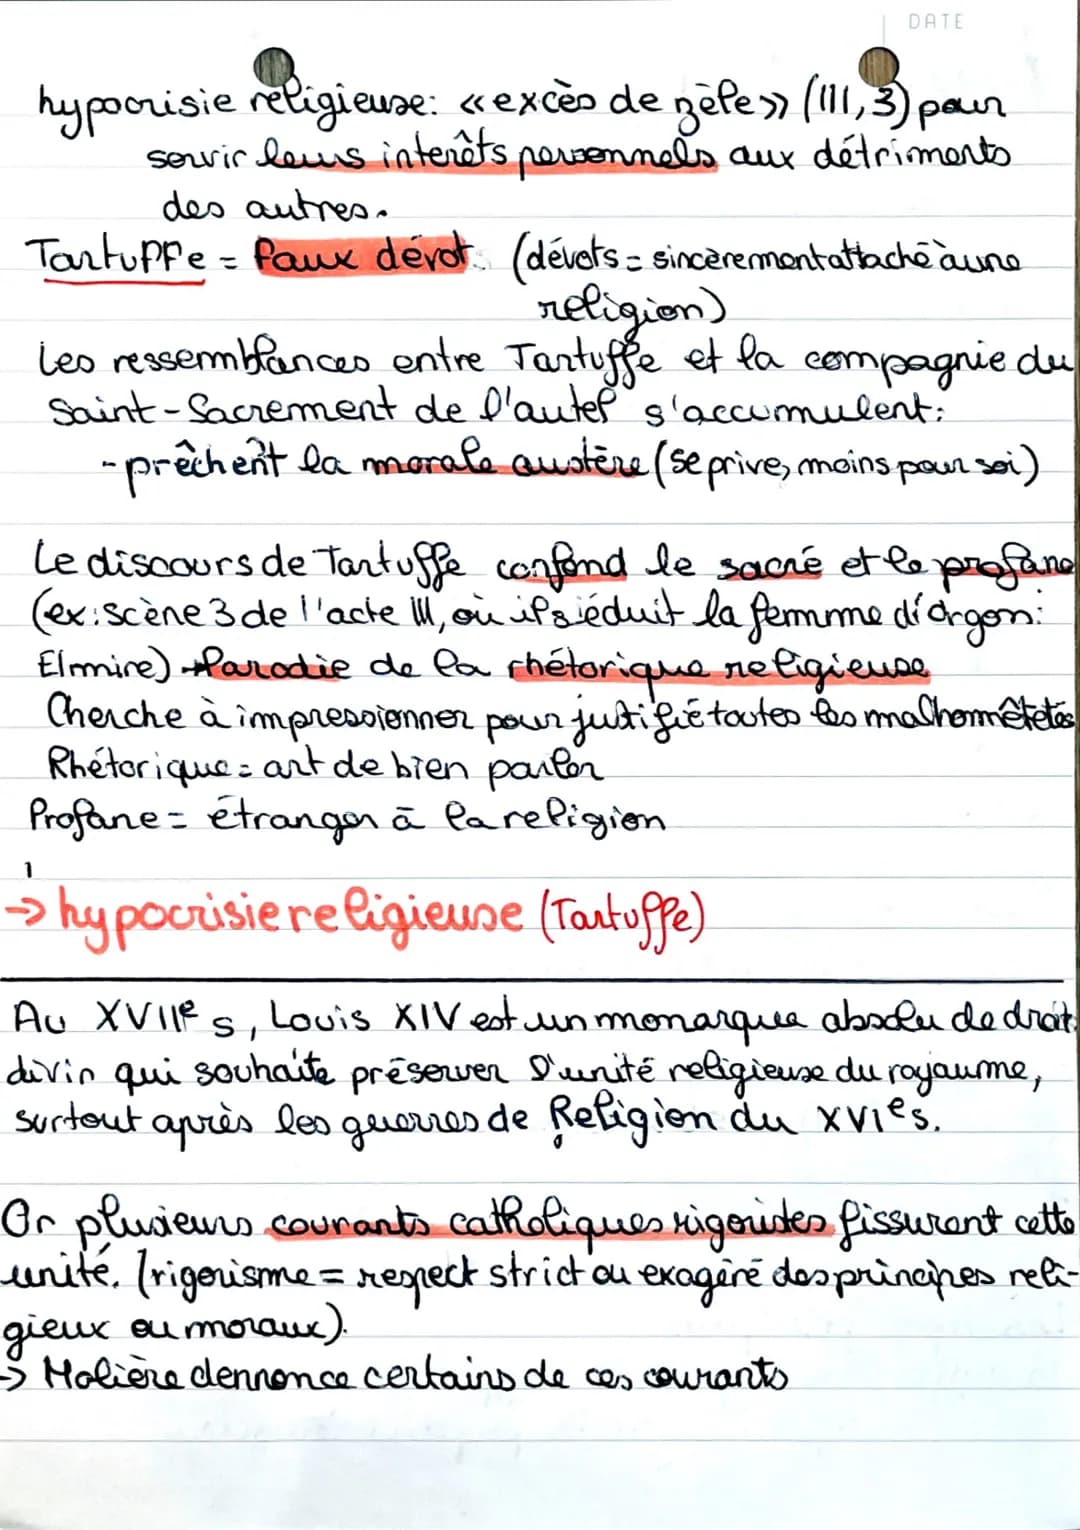 DATE
hypocrisie religieuse: «excès de zèle» (III,3) pour
servir leurs interêts personnels aux détriments
des autres.
Tartuffe = faux dévot. (dévots = sincèrement attaché à une
religion)
Les ressemblances entre Tartuffe et la compagnie du
Saint-Sacrement de l'autel s'accumulent:
- prêchent la morale austère (se prive, moins pour soi)
Le discours de Tartuffe confond le sacré et le profane
(ex: scène 3 de l'acte III, où il séduit la femme d'Orgon:
Elmire) → Parodie de la rhétorique religieuse
Cherche à impressionner pour justifié toutes les malhonnêtetés
Rhétorique = art de bien parler
Profane = étranger à la religion
→ hypocrisie religieuse (Tartuffe)
Au XVIIe s, Louis XIV est un monarque absolu de droit
divin qui souhaite préserver l'unité religieuse du royaume,
surtout après les guerres de Religion du XVIe s.
Or plusieurs courants catholiques rigoristes fissurent cette
unité. (rigorisme = respect strict ou exagéré des principes reli-
gieux ou moraux).
→ Molière dennonce certains de ces courants